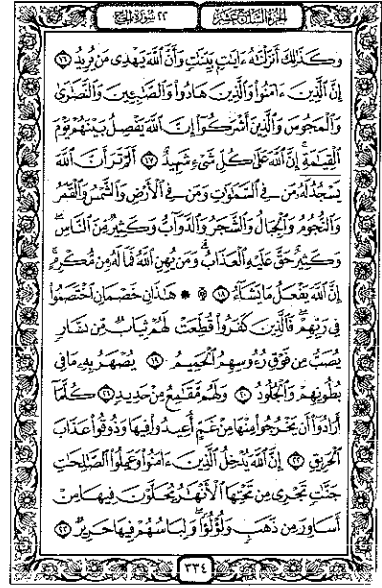 الجزء السابع عشر
٢٢ سورة الحج
وَكَذَٰلِكَ أَنزَلْنَٰهُ ءَايَٰتٍۭ بَيِّنَٰتٍ وَأَنَّ ٱللَّهَ يَهْدِى مَن يُرِيدُ ١٦
إِنَّ ٱلَّذِينَ ءَامَنُوا۟ وَٱلَّذِينَ هَادُوا۟ وَٱلصَّٰبِـِٔينَ وَٱلنَّصَٰرَىٰ
وَٱلْمَجُوسَ وَٱلَّذِينَ أَشْرَكُوٓا۟ إِنَّ ٱللَّهَ يَفْصِلُ بَيْنَهُمْ يَوْمَ
ٱلْقِيَٰمَةِ ۚ إِنَّ ٱللَّهَ عَلَىٰ كُلِّ شَىْءٍ شَهِيدٌ ١٧ أَلَمْ تَرَ أَنَّ ٱللَّهَ
يَسْجُدُ لَهُۥ مَن فِى ٱلسَّمَٰوَٰتِ وَمَن فِى ٱلْأَرْضِ وَٱلشَّمْسُ وَٱلْقَمَرُ
وَٱلنُّجُومُ وَٱلْجِبَالُ وَٱلشَّجَرُ وَٱلدَّوَآبُّ وَكَثِيرٌ مِّنَ ٱلنَّاسِ ۖ
وَكَثِيرٌ حَقَّ عَلَيْهِ ٱلْعَذَابُ ۗ وَمَن يُهِنِ ٱللَّهُ فَمَا لَهُۥ مِن مُّكْرِمٍ ۚ
إِنَّ ٱللَّهَ يَفْعَلُ مَا يَشَآءُ ۩ ١٨ ۞ هَٰذَانِ خَصْمَانِ ٱخْتَصَمُوا۟
فِى رَبِّهِمْ ۖ فَٱلَّذِينَ كَفَرُوا۟ قُطِّعَتْ لَهُمْ ثِيَابٌ مِّن نَّارٍ
يُصَبُّ مِن فَوْقِ رُءُوسِهِمُ ٱلْحَمِيمُ ١٩ يُصْهَرُ بِهِۦ مَا فِى
بُطُونِهِمْ وَٱلْجُلُودُ ٢٠ وَلَهُم مَّقَٰمِعُ مِنْ حَدِيدٍ ٢١ كُلَّمَآ
أَرَادُوٓا۟ أَن يَخْرُجُوا۟ مِنْهَا مِنْ غَمٍّ أُعِيدُوا۟ فِيهَا وَذُوقُوا۟ عَذَابَ
ٱلْحَرِيقِ ٢٢ إِنَّ ٱللَّهَ يُدْخِلُ ٱلَّذِينَ ءَامَنُوا۟ وَعَمِلُوا۟ ٱلصَّٰلِحَٰتِ
جَنَّٰتٍ تَجْرِى مِن تَحْتِهَا ٱلْأَنْهَٰرُ يُحَلَّوْنَ فِيهَا مِنْ
أَسَاوِرَ مِن ذَهَبٍ وَلُؤْلُؤًا ۖ وَلِبَاسُهُمْ فِيهَا حَرِيرٌ ٢٣
٣٣٤